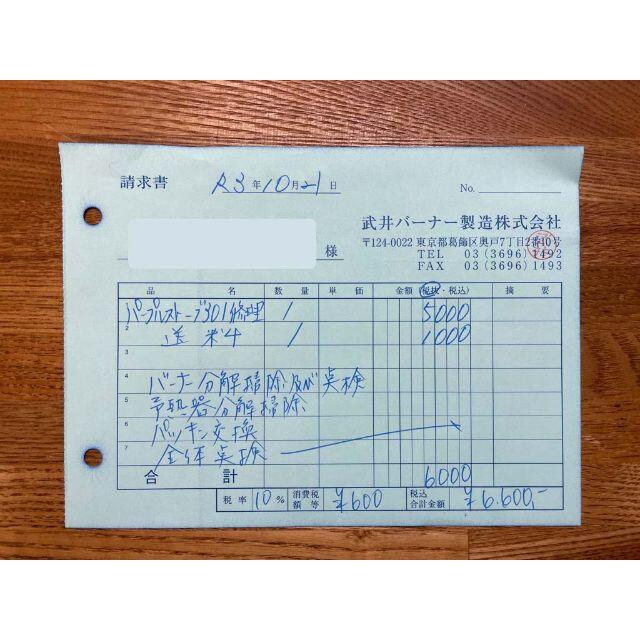 請求書 R3年10月21日 No.
武井バーナー製造株式会社
様 〒124-0022 東京都葛飾区奥戸7丁目2番10号
TEL 03(3696)1492
FAX 03(3696)1493
品名 数量 単価 金額(税抜・税込) 摘要
1 パープルストーブ301修理 1 5000
2 送料 1 1000
3
4 バーナー分解掃除及び点検
5 予熱器分解掃除
6 パッキン交換
7 全体点検
合計 6000
税率 10% 消費税額等 ¥600 税込合計金額 ¥6.600,-